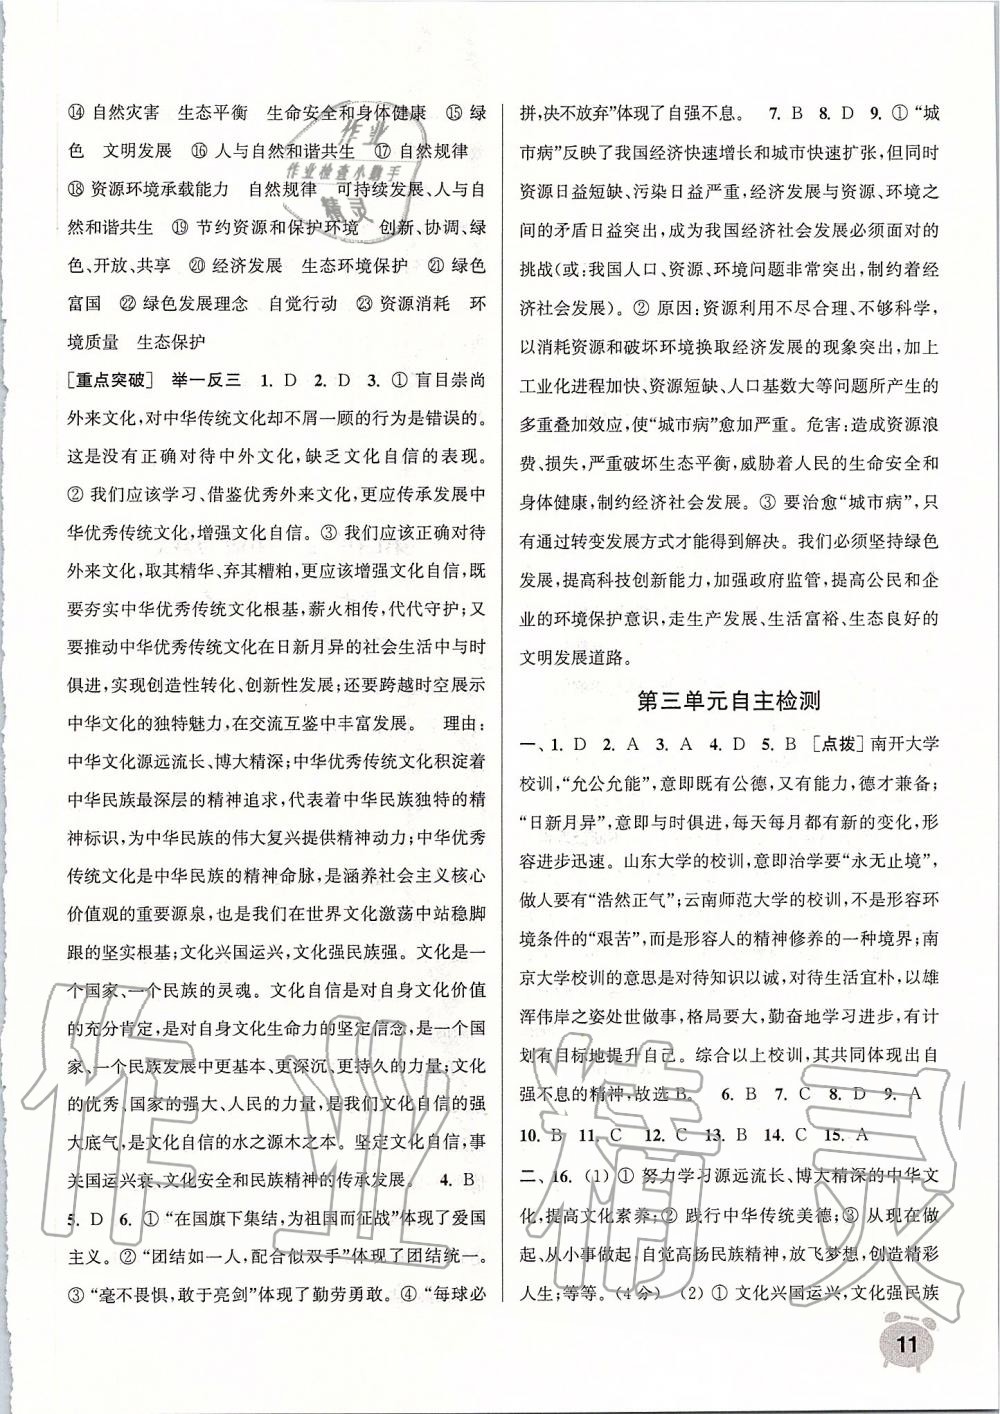 ⑭ 自然灾害　生态平衡　生命安全和身体健康　⑮ 绿
色　文明发展　⑯ 人与自然和谐共生　⑰ 自然规律
⑱ 资源环境承载能力　自然规律　可持续发展、人与自
然和谐共生　⑲ 节约资源和保护环境　创新、协调、绿
色、开放、共享　⑳ 经济发展　生态环境保护　㉑ 绿色
富国　㉒ 绿色发展理念　自觉行动　㉓ 资源消耗　环
境质量　生态保护
[重点突破]　举一反三　1. D　2. D　3. ① 盲目崇尚
外来文化，对中华传统文化却不屑一顾的行为是错误的。
这是没有正确对待中外文化，缺乏文化自信的表现。
② 我们应该学习、借鉴优秀外来文化，更应传承发展中
华优秀传统文化，增强文化自信。③ 我们应该正确对待
外来文化，取其精华、弃其糟粕，更应该增强文化自信，既
要夯实中华优秀传统文化根基，薪火相传，代代守护；又
要推动中华优秀传统文化在日新月异的社会生活中与时
俱进，实现创造性转化、创新性发展；还要跨越时空展示
中华文化的独特魅力，在交流互鉴中丰富发展。　理由：
中华文化源远流长、博大精深；中华优秀传统文化积淀着
中华民族最深层的精神追求，代表着中华民族独特的精
神标识，为中华民族的伟大复兴提供精神动力；中华优秀
传统文化是中华民族的精神命脉，是涵养社会主义核心
价值观的重要源泉，也是我们在世界文化激荡中站稳脚
跟的坚实根基；文化兴国运兴，文化强民族强。文化是一
个国家、一个民族的灵魂。文化自信是对自身文化价值
的充分肯定，是对自身文化生命力的坚定信念，是一个国
家、一个民族发展中更基本、更深沉、更持久的力量；文化
的优秀、国家的强大、人民的力量，是我们文化自信的强
大底气，是文化自信的水之源木之本。坚定文化自信，事
关国运兴衰、文化安全和民族精神的传承发展。　4. B
5. D　6. ① “在国旗下集结，为祖国而征战”体现了爱国
主义。② “团结如一人，配合似双手”体现了团结统一。
③ “毫不畏惧，敢于亮剑”体现了勤劳勇敢。④ “每球必
拼，决不放弃”体现了自强不息。　7. B　8. D　9. ① “城
市病”反映了我国经济快速增长和城市快速扩张，但同时
资源日益短缺、污染日益严重，经济发展与资源、环境之
间的矛盾日益突出，成为我国经济社会发展必须面对的
挑战（或：我国人口、资源、环境问题非常突出，制约着经
济社会发展）。② 原因：资源利用不尽合理、不够科学，
以消耗资源和破坏环境换取经济发展的现象突出，加上
工业化进程加快、资源短缺、人口基数大等问题所产生的
多重叠加效应，使“城市病”愈加严重。危害：造成资源浪
费、损失，严重破坏生态平衡，威胁着人民的生命安全和
身体健康，制约经济社会发展。③ 要治愈“城市病”，只
有通过转变发展方式才能得到解决。我们必须坚持绿色
发展，提高科技创新能力，加强政府监管，提高公民和企
业的环境保护意识，走生产发展、生活富裕、生态良好的
文明发展道路。
第三单元自主检测
一、1. D　2. A　3. A　4. D　5. B　[点拨] 南开大学
校训，“允公允能”，意即既有公德，又有能力，德才兼备；
“日新月异”，意即与时俱进，每天每月都有新的变化，形
容进步迅速。山东大学的校训，意即治学要“永无止境”，
做人要有“浩然正气”；云南师范大学的校训，不是形容环
境条件的“艰苦”，而是形容人的精神修养的一种境界；南
京大学校训的意思是对待知识以诚，对待生活宜朴，以雄
浑伟岸之姿处世做事，格局要大，勤奋地学习进步，有计
划有目标地提升自己。综合以上校训，其共同体现出自
强不息的精神，故选B。　6. B　7. C　8. D　9. A
10. B　11. C　12. C　13. B　14. C　15. A
二、16. （1）① 努力学习源远流长、博大精深的中华文
化，提高文化素养；② 践行中华传统美德；③ 从现在做
起、从小事做起，自觉高扬民族精神，放飞梦想，创造精彩
人生；等等。（4分）（2）① 文化兴国运兴，文化强民族
11
作业
作业检查小助手
精灵
作业精灵